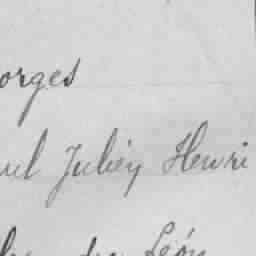 orges
ul Julien Henri
Léon